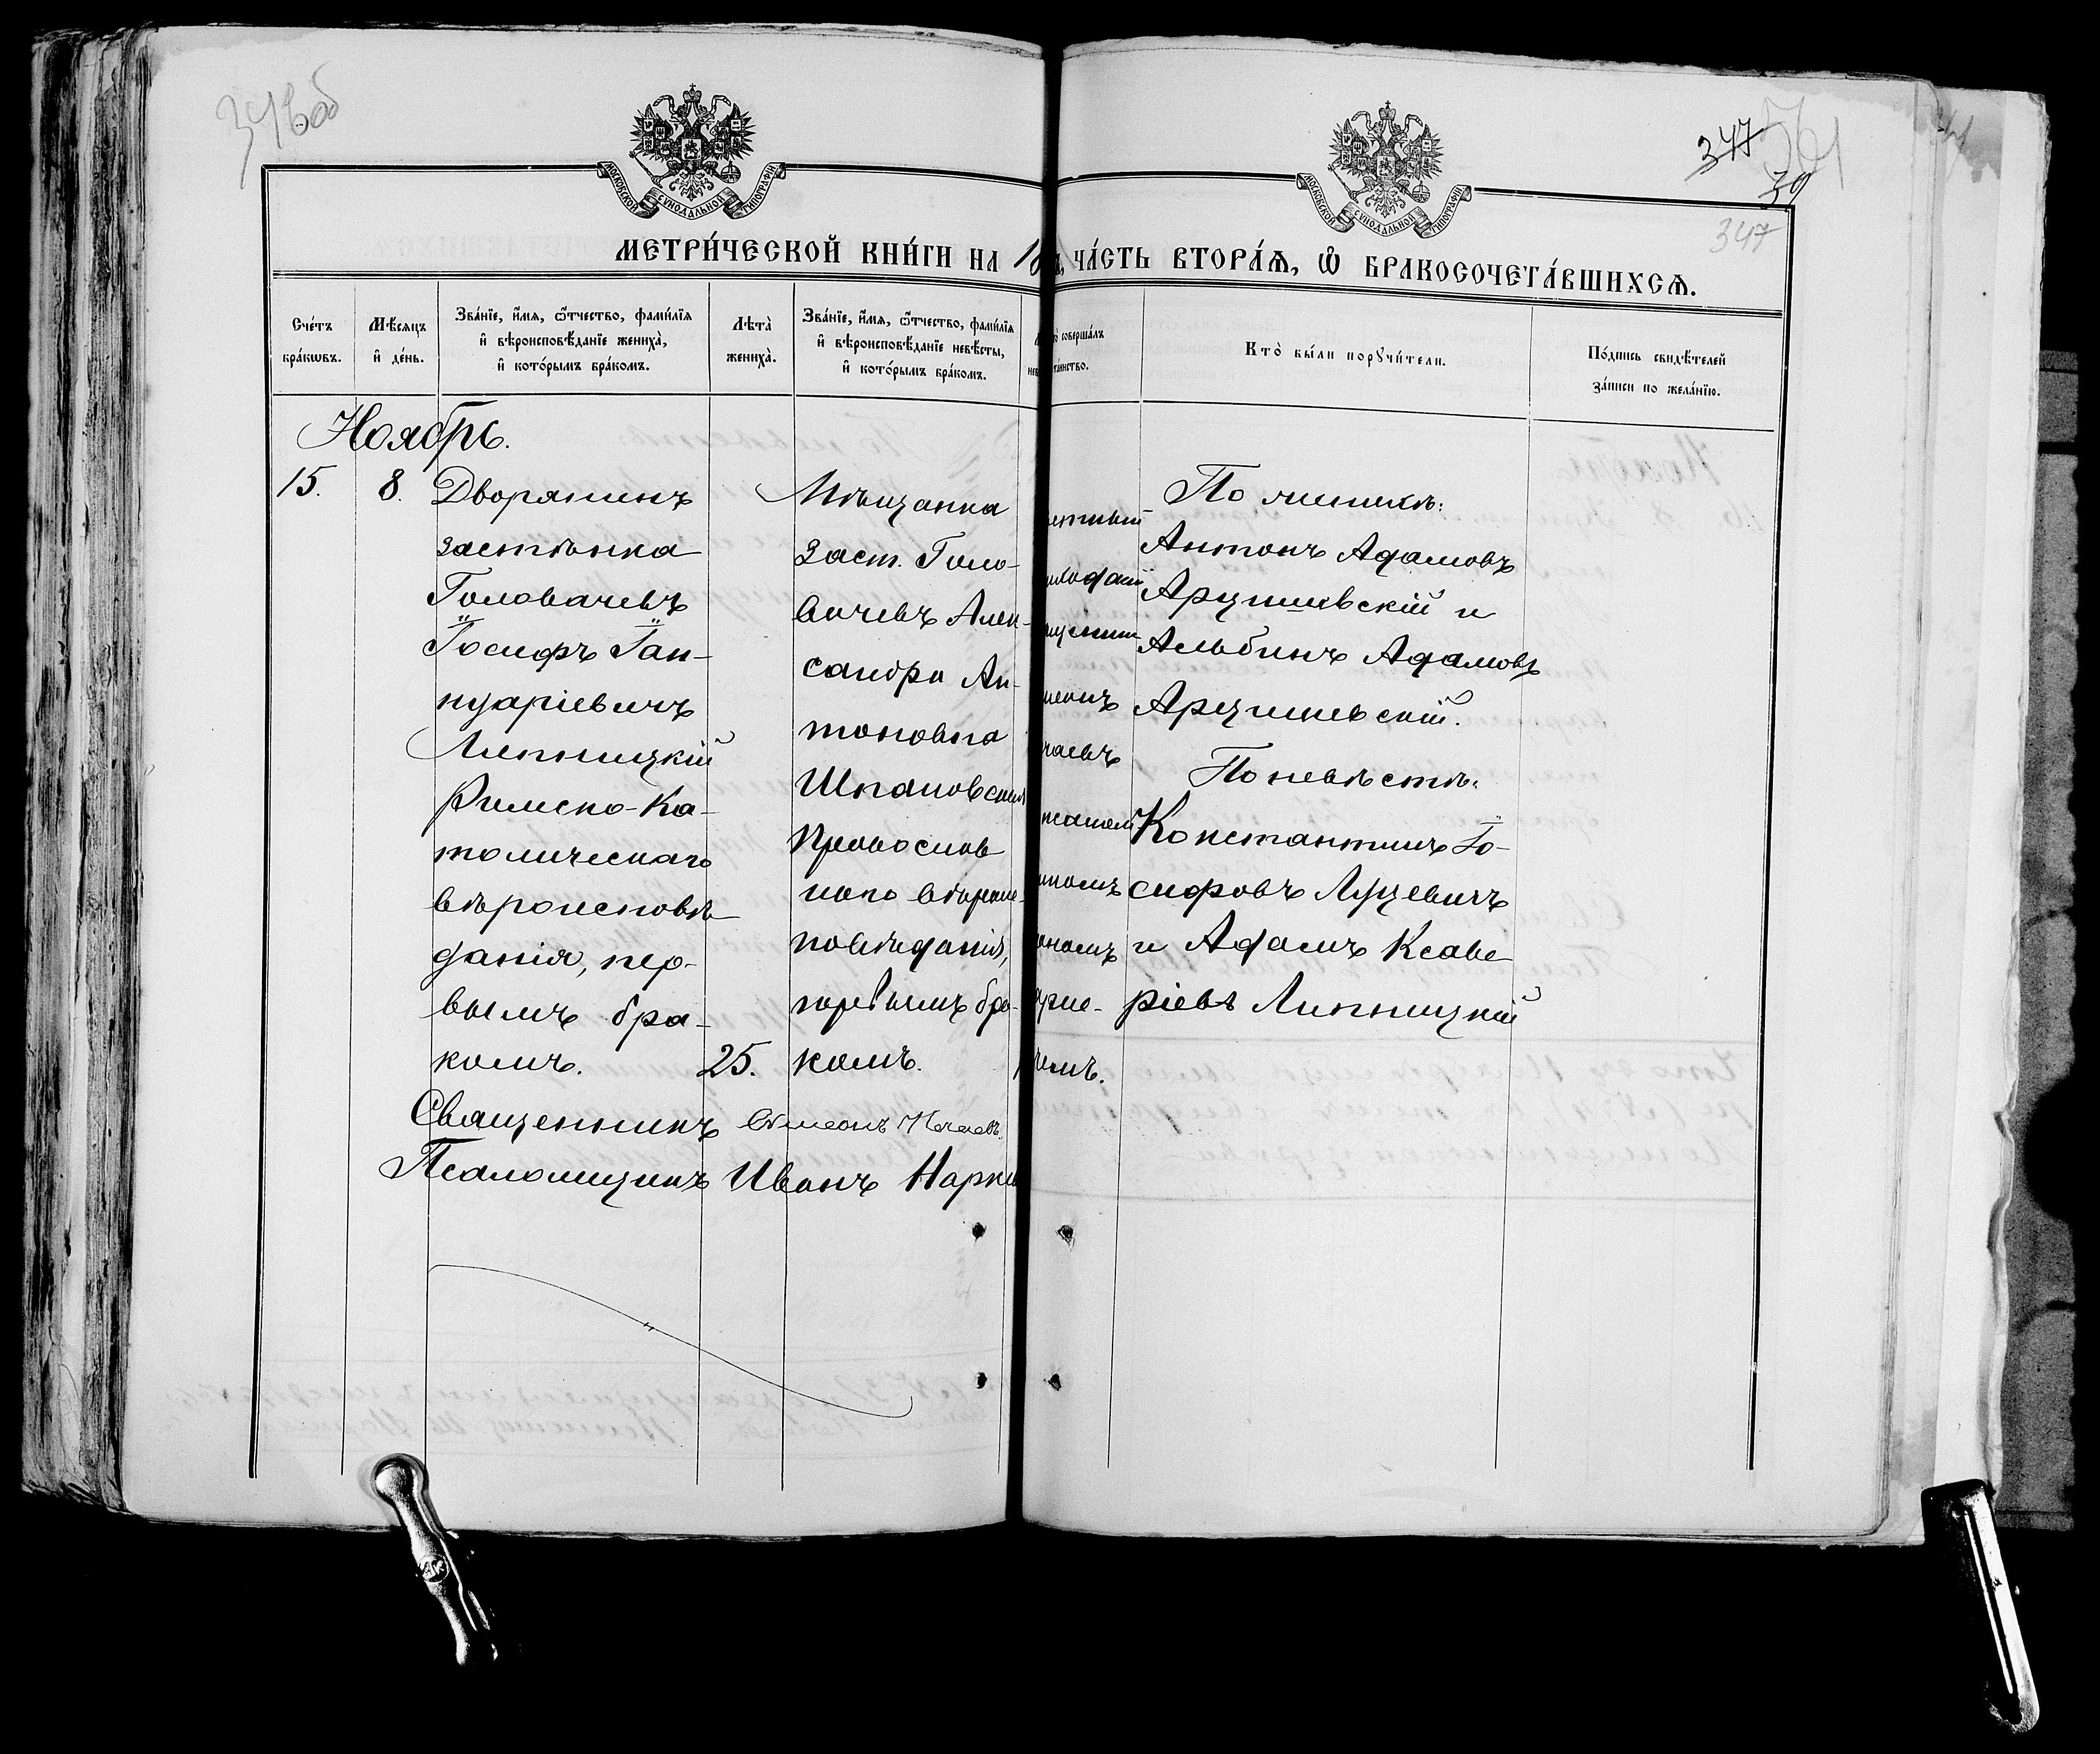 346 об
347
39
347
МОСКОВСКОЙ СѴНОДАЛЬНОЙ ТИПОГРАФІИ
МОСКОВСКОЙ СѴНОДАЛЬНОЙ ТИПОГРАФІИ
МЕТРИ́ЧЕСКОЙ КНИ́ГИ НА 18 ЧА́СТЬ ВТОРА́Ѧ, Ѽ БРАКОСОЧЕТА́ВШИХСѦ.
Сче́тъ
бра́кѡвъ.
Мѣ́сѧцъ
и҆ де́нь.
Зва́нїе, и҆́мѧ, ѻ҆́тчество, фами́лїѧ
и҆ вѣроисповѣ́данїе жениха̀,
и҆ кото́рымъ бра́комъ.
Лѣта̀
жениха̀.
Зва́нїе, и҆́мѧ, ѻ҆́тчество, фами́лїѧ
и҆ вѣроисповѣ́данїе невѣ́сты,
и҆ кото́рымъ бра́комъ.
соверша́лъ
та́инство.
Кто̀ бы́ли порꙋчи́тели.
По́дпись свидѣ́телей
за́писи по жела́нїю.
Ноябрь.
15.
8.
Дворянинъ
застѣнка
Головачевъ
Іосифъ Іан-
нуаріевичъ
Липницкій
Римско-Ка-
толическаго
вѣроисповѣ-
данія, пер-
вымъ бра-
комъ.
25.
Мѣщанка
Заст. Голо-
вачевъ Алек-
сандра Ан-
тоновна
Шпановская
Православ
наго вѣроис-
повѣданія,
первымъ бра-
комъ.
По женихѣ:
Антонъ Адамовъ
Арцишевскій и
Альбинъ Адамовъ
Арцишевскій.
По невѣстѣ:
Константинъ Іо-
сифовъ Луцевичъ
и Адамъ Ксаве
ріевъ Липницкій
Священникъ Симеонъ Нечаевъ.
Псаломщикъ Иванъ